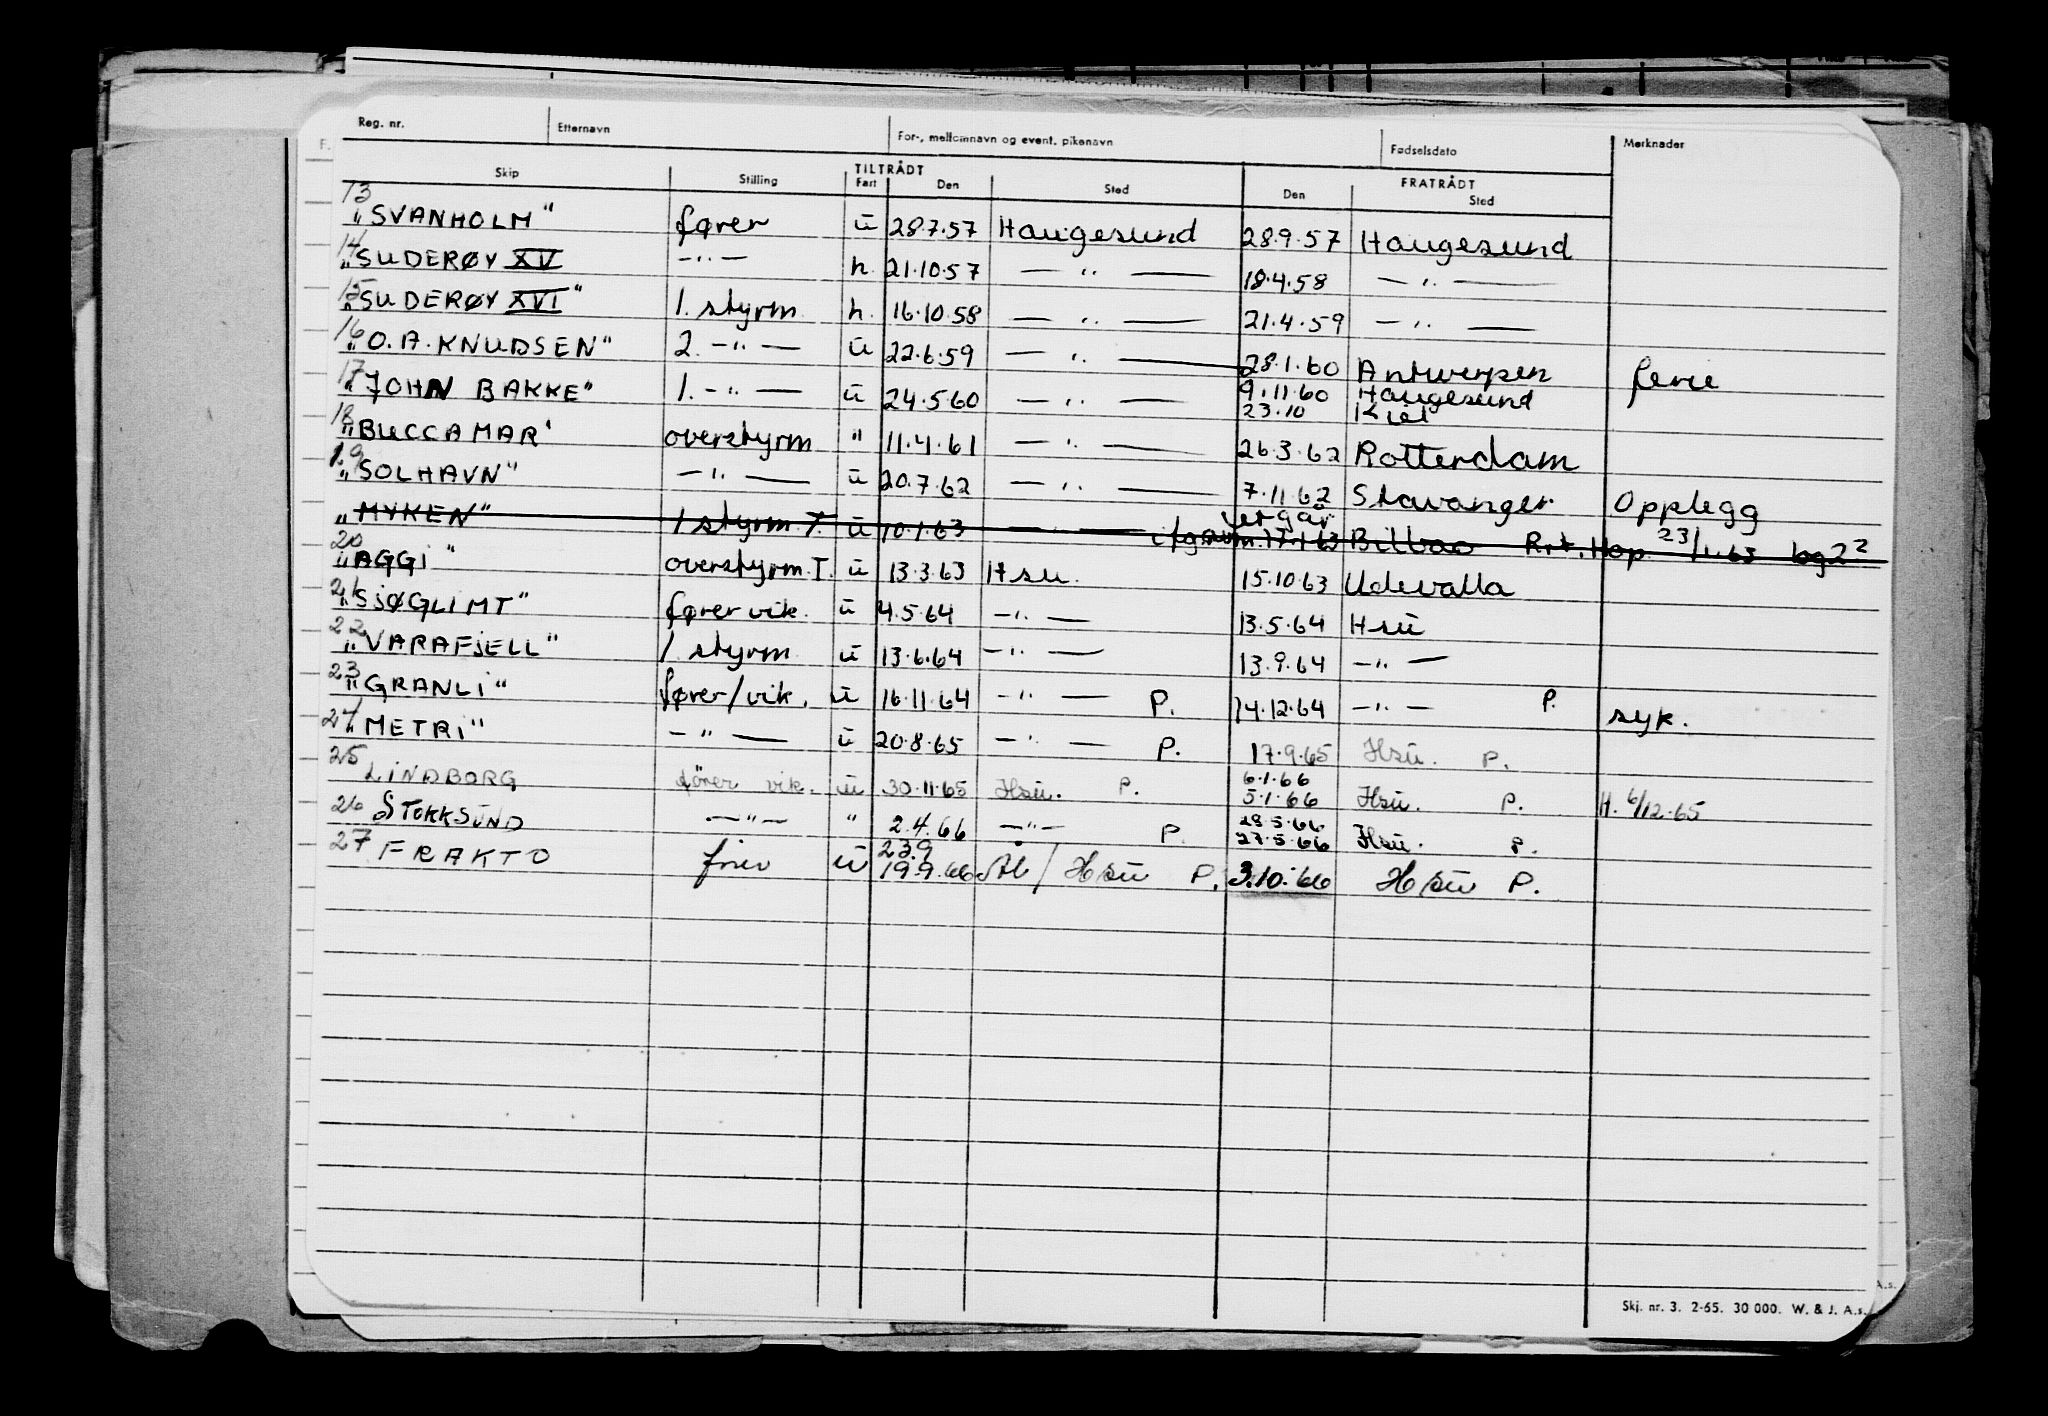 Reg. nr. Etternavn For-, mellomnavn og event. pikenavn Fødselsdato Merknader
TILTRÅDT FRATRÅDT
Skip Stilling Fart Den Sted Den Sted
13 "SVANHOLM" fører u 28.7.57 Haugesund 28.9.57 Haugesund
14 "SUDERØY XV —"— h. 21.10.57 —"— 18.4.58 —"—
15 "SUDERØY XVI" 1. styrm. h. 16.10.58 —"— 21.4.59 —"—
16 "O.A. KNUDSEN" 2. —"— u 22.6.59 —"— 28.1.60 Antwerpen ferie
17 "JOHN BAKKE" 1. —"— u 24.5.60 —"— 9.11.60 Haugesund
23.10 Kiel
18 "BUCCAMAR" overstyrm " 11.4.61 —"— 26.3.62 Rotterdam
19 "SOLHAVN" —"— u 20.7.62 —"— 7.11.62 Stavanger Opplegg
utgår
"MYKEN" 1 styrm. T. u 10.1.63 —"— 17.1.63 Bilbao Hop. 23/1.63
20 "AGGI" overstyrm. I. u 13.3.63 Hsu. 15.10.63 Udevalla
21 "SJØGLIMT" fører vik. u 4.5.64 —"— 13.5.64 Hsu
22 "VARAFJELL" 1 styrm u 13.6.64 —"— 13.9.64 —"—
23 "GRANLI" fører/vik. u 16.11.64 —"— P. 14.12.64 —"— P. syk.
24 "METRI" —"— u 20.8.65 —"— P. 17.9.65 Hsu. P.
6.1.66
25 LINDBORG fører vik. u 30.11.65 Hsu. P. 5.1.66 Hsu. P. H. 6/12.65
28.5.66
26 STOKKSUND —"— " 2.4.66 —"— P. 27.5.66 Hsu. P.
23.9
27 FRAKTO fører u 19.9.66 Al/Hsu P. 3.10.66 Hsu P.
A.s.
Skj. nr. 3. 2-65. 30 000. W. & J. A.s.